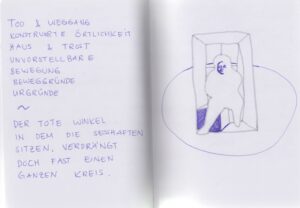 TOD & WEGGANG
KONSTRUIRTE ÖRTLICHKEIT
HAUS & TROST
UNVORSTELLBARE
BEWEGUNG
BEWEGGRÜNDE
URGRÜNDE
~
DER TOTE WINKEL
IN DEM DIE SESSHAFTEN
SITZEN, VERDRÄNGT
DOCH FAST EINEN
GANZEN KREIS.